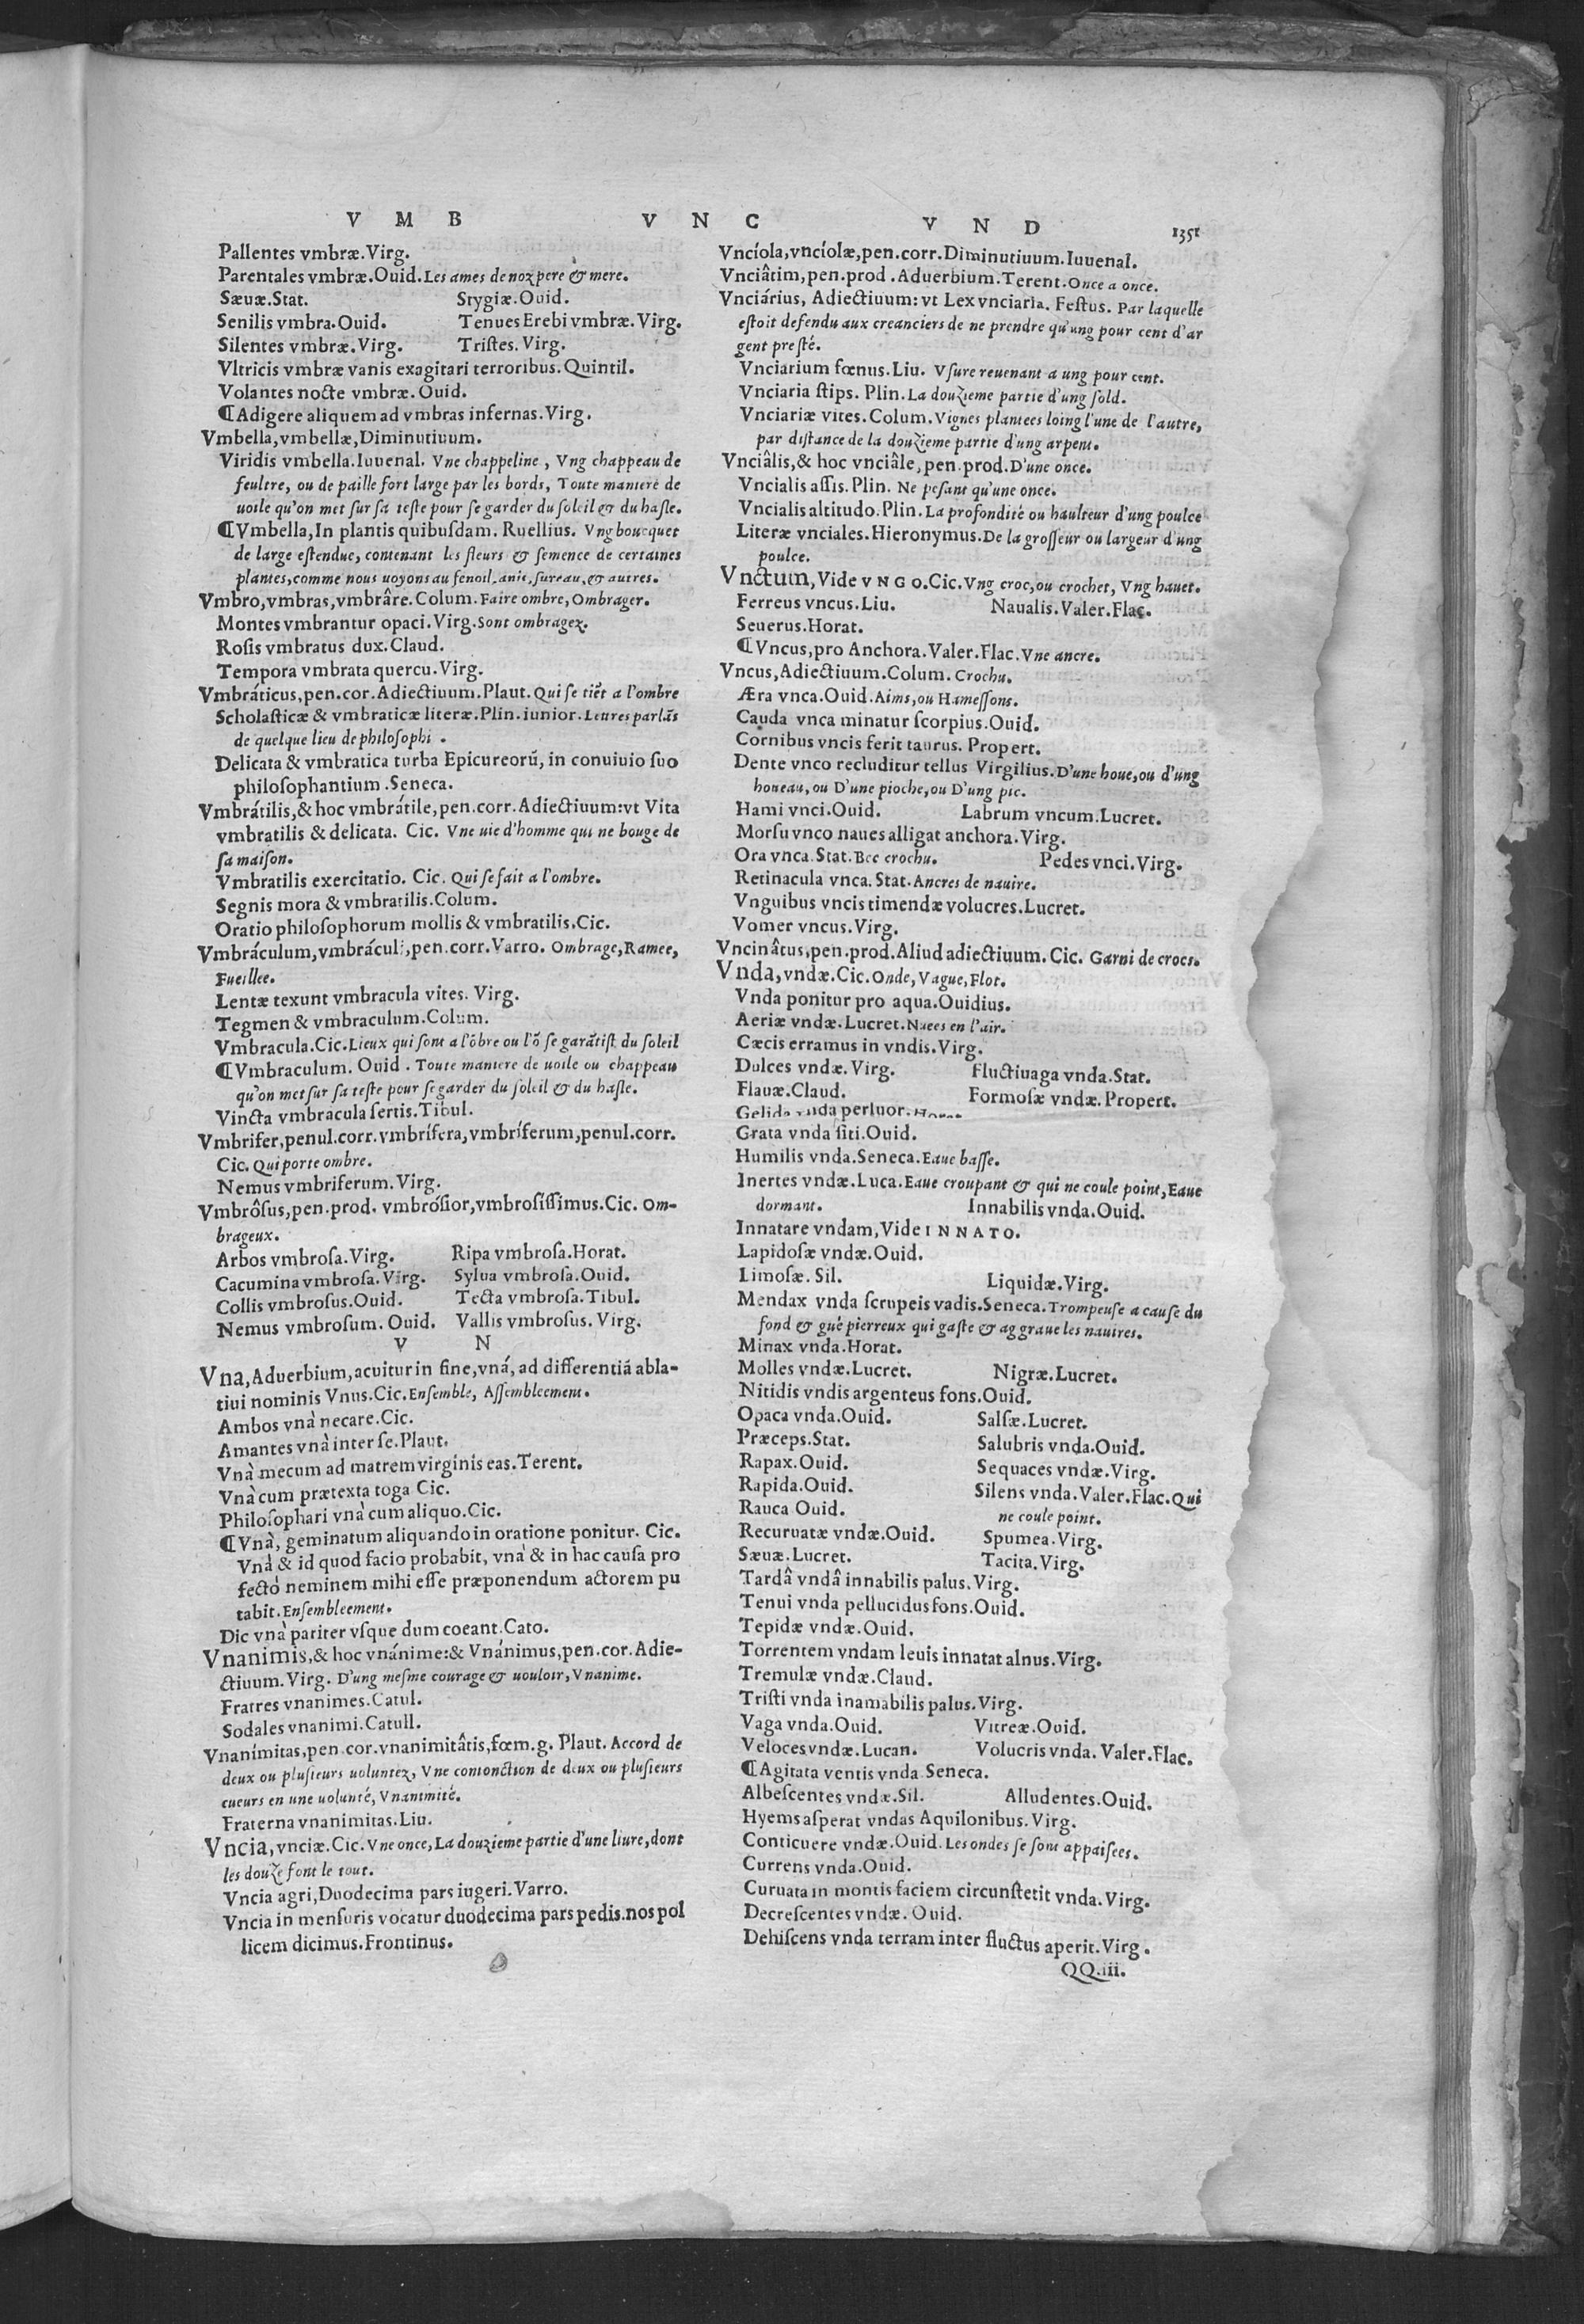 V M B V N C V N D 1351
Pallentes vmbræ.Virg.
Parentales vmbræ.Ouid.Les ames de noz pere & mere.
Sæuæ.Stat. Stygiæ.Ouid.
Senilis vmbra.Ouid. Tenues Erebi vmbræ.Virg.
Silentes vmbræ.Virg. Tristes.Virg.
Vltricis vmbræ vanis exagitari terroribus.Quintil.
Volantes nocte vmbræ.Ouid.
¶Adigere aliquem ad vmbras infernas.Virg.
Vmbella,vmbellæ,Diminutiuum.
Viridis vmbella.Iuuenal. Vne chappeline, Vng chappeau de
feultre, ou de paille fort large par les bords, Toute maniere de
uoile qu'on met sur sa teste pour se garder du soleil & du hasle.
¶Vmbella,In plantis quibusdam. Ruellius. Vng boucquet
de large estendue, contenant les fleurs & semence de certaines
plantes,comme nous uoyons au fenoil,anis,sureau,& autres.
Vmbro,vmbras,vmbrâre.Colum.Faire ombre,Ombrager.
Montes vmbrantur opaci.Virg.Sont ombragez.
Rosis vmbratus dux.Claud.
Tempora vmbrata quercu.Virg.
Vmbráticus,pen.cor.Adiectiuum.Plaut.Qui se tiẽt a l'ombre
Scholasticæ & vmbraticæ literæ.Plin.iunior.Leures parlãs
de quelque lieu de philosophi .
Delicata & vmbratica turba Epicureorũ, in conuiuio suo
philosophantium.Seneca.
Vmbrátilis,& hoc vmbrátile,pen.corr.Adiectiuum:vt Vita
vmbratilis & delicata. Cic. Vne uie d'homme qui ne bouge de
sa maison.
Vmbratilis exercitatio. Cic. Qui se fait a l'ombre.
Segnis mora & vmbratilis.Colum.
Oratio philosophorum mollis & vmbratilis.Cic.
Vmbráculum,vmbráculi,pen.corr.Varro. Ombrage,Ramee,
Fueillee.
Lentæ texunt vmbracula vites. Virg.
Tegmen & vmbraculum.Colum.
Vmbracula.Cic.Lieux qui sont a l'õbre ou l'õ se garãtist du soleil
¶Vmbraculum. Ouid . Toute maniere de uoile ou chappeau
qu'on met sur sa teste pour se garder du soleil & du hasle.
Vincta vmbracula sertis.Tibul.
Vmbrifer,penul.corr.vmbrífera,vmbríferum,penul.corr.
Cic.Qui porte ombre.
Nemus vmbriferum.Virg.
Vmbrôsus,pen.prod. vmbrósior,vmbrosíssimus.Cic. Om-
brageux.
Arbos vmbrosa.Virg. Ripa vmbrosa.Horat.
Cacumina vmbrosa.Virg. Sylua vmbrosa.Ouid.
Collis vmbrosus.Ouid. Tecta vmbrosa.Tibul.
Nemus vmbrosum.Ouid. Vallis vmbrosus.Virg.
V N
Vna,Aduerbium,acuitur in fine,vná, ad differentiã abla-
tiui nominis Vnus.Cic.Ensemble, Assembleement.
Ambos vnà necare.Cic.
Amantes vnà inter se.Plaut.
Vnà mecum ad matrem virginis eas.Terent.
Vnà cum prætexta toga Cic.
Philosophari vnà cum aliquo.Cic.
¶Vnà, geminatum aliquando in oratione ponitur. Cic.
Vnà & id quod facio probabit, vnà & in hac causa pro
fectò neminem mihi esse præponendum actorem pu
tabit.Ensembleement.
Dic vnà pariter vsque dum coeant.Cato.
Vnanimis,& hoc vnánime:& Vnánimus,pen.cor.Adie-
ctiuum.Virg. D'ung mesme courage & uouloir, Vnanime.
Fratres vnanimes.Catul.
Sodales vnanimi.Catull.
Vnanimitas,pen.cor.vnanimitâtis,fœm.g. Plaut. Accord de
deux ou plusieurs uoluntez, Vne conionction de deux ou plusieurs
cueurs en une uolunté, Vnanimité.
Fraterna vnanimitas.Liu.
Vncia,vnciæ.Cic.Vne once,La douzieme partie d'une liure,dont
les douze font le tout.
Vncia agri,Duodecima pars iugeri.Varro.
Vncia in mensuris vocatur duodecima pars pedis.nos pol
licem dicimus.Frontinus.
Vncíola,vncíolæ,pen.corr.Diminutiuum.Iuuenal.
Vnciâtim,pen.prod.Aduerbium.Terent.Once a once.
Vnciárius, Adiectiuum: vt Lex vnciaria. Festus. Par laquelle
estoit defendu aux creanciers de ne prendre qu'ung pour cent d'ar
gent presté.
Vnciarium fœnus.Liu. Vsure reuenant a ung pour cent.
Vnciaria stips. Plin.La douzieme partie d'ung sold.
Vnciariæ vites.Colum.Vignes plantees loing l'une de l'autre,
par distance de la douzieme partie d'ung arpent.
Vnciâlis,& hoc vnciâle,pen.prod.D'une once.
Vncialis assis.Plin. Ne pesant qu'une once.
Vncialis altitudo.Plin.La profondité ou haulteur d'ung poulce
Literæ vnciales.Hieronymus.De la grosseur ou largeur d'ung
poulce.
Vnctum,Vide VNGO.Cic.Vng croc,ou crochet, Vng hauet.
Ferreus vncus.Liu. Naualis.Valer.Flac.
Seuerus.Horat.
¶Vncus,pro Anchora.Valer.Flac.Vne ancre.
Vncus,Adiectiuum.Colum. Crochu.
Æra vnca.Ouid.Aims,ou Hamessons.
Cauda vnca minatur scorpius.Ouid.
Cornibus vncis ferit taurus. Propert.
Dente vnco recluditur tellus Virgilius.D'une houe,ou d'ung
houeau,ou D'une pioche,ou D'ung pic.
Hami vnci.Ouid. Labrum vncum.Lucret.
Morsu vnco naues alligat anchora.Virg.
Ora vnca.Stat.Bec crochu. Pedes vnci.Virg.
Retinacula vnca.Stat.Ancres de nauire.
Vnguibus vncis timendæ volucres.Lucret.
Vomer vncus.Virg.
Vncinâtus,pen.prod.Aliud adiectiuum. Cic. Garni de crocs.
Vnda,vndæ.Cic.Onde,Vague,Flot.
Vnda ponitur pro aqua.Ouidius.
Aeriæ vndæ.Lucret.Nuees en l'air.
Cæcis erramus in vndis.Virg.
Dulces vndæ.Virg. Fluctiuaga vnda.Stat.
Flauæ.Claud. Formosæ vndæ.Propert.
Gelida vnda perluor.Horat.
Grata vnda siti.Ouid.
Humilis vnda.Seneca.Eaue basse.
Inertes vndæ.Luca.Eaue croupant & qui ne coule point,Eaue
dormant. Innabilis vnda.Ouid.
Innatare vndam,Vide INNATO.
Lapidosæ vndæ.Ouid.
Limosæ. Sil. Liquidæ.Virg.
Mendax vnda scrupeis vadis.Seneca.Trompeuse a cause du
fond & gué pierreux qui gaste & aggraue les nauires.
Minax vnda.Horat.
Molles vndæ.Lucret. Nigræ.Lucret.
Nitidis vndis argenteus fons.Ouid.
Opaca vnda.Ouid. Salsæ.Lucret.
Præceps.Stat. Salubris vnda.Ouid.
Rapax.Ouid. Sequaces vndæ.Virg.
Rapida.Ouid. Silens vnda.Valer.Flac.Qui
Rauca Ouid. ne coule point.
Recuruatæ vndæ.Ouid. Spumea.Virg.
Sæuæ.Lucret. Tacita.Virg.
Tardâ vndâ innabilis palus.Virg.
Tenui vnda pellucidus fons.Ouid.
Tepidæ vndæ.Ouid.
Torrentem vndam leuis innatat alnus.Virg.
Tremulæ vndæ.Claud.
Tristi vnda inamabilis palus.Virg.
Vaga vnda.Ouid. Vitreæ.Ouid.
Veloces vndæ.Lucan. Volucris vnda. Valer.Flac.
¶Agitata ventis vnda Seneca.
Albescentes vndæ.Sil. Alludentes.Ouid.
Hyems asperat vndas Aquilonibus.Virg.
Conticuere vndæ.Ouid.Les ondes se sont appaisees.
Currens vnda.Ouid.
Curuata in montis faciem circunstetit vnda.Virg.
Decrescentes vndæ. Ouid.
Dehiscens vnda terram inter fluctus aperit.Virg.
QQ.iii.